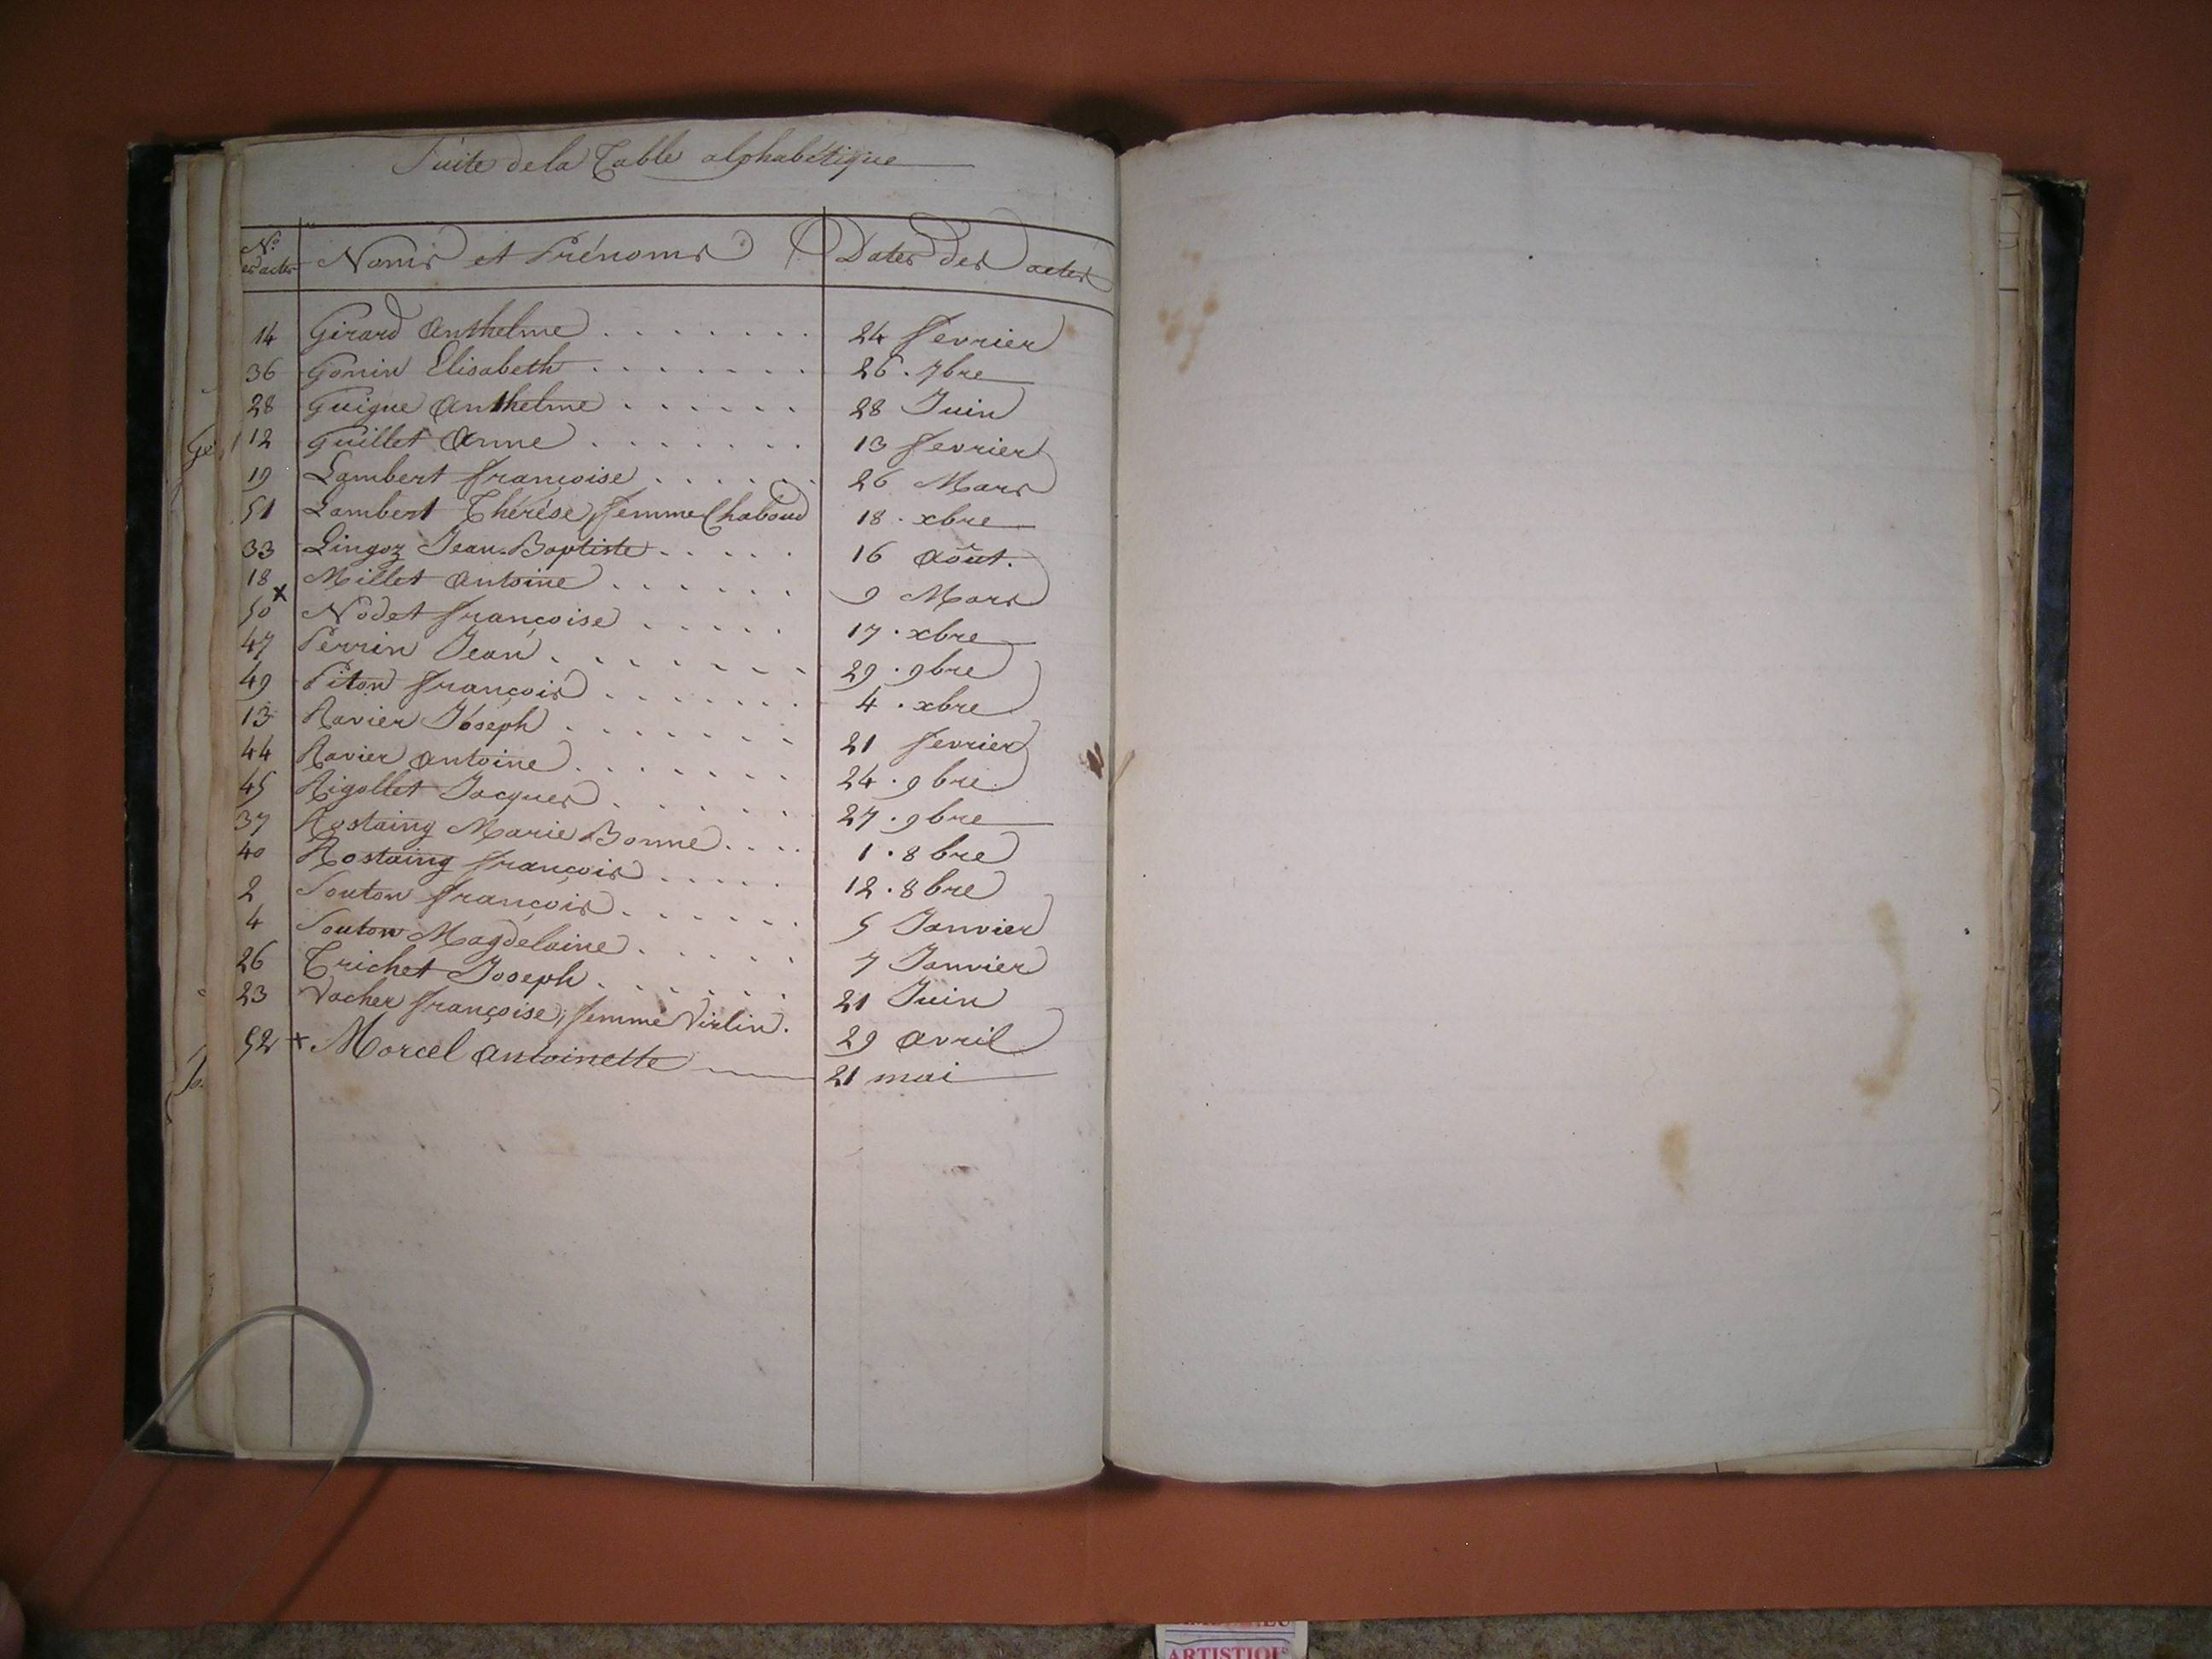 Suite de la Table alphabétique
Nos
des actes
Noms et Prénoms
Dates des actes
14 Girard Anthelme . . . . . . . 24 fevrier
36 Gonin Elisabeth . . . . . . . 26 . 7bre
28 Guigue Anthelme . . . . . . 28 Juin
12 Guillet Anne . . . . . . . 13 fevrier
19 Lambert françoise . . . . . . 26 Mars
51 Lambert Thérèse, femme Chaboud 18 . xbre
33 Lingoz Jean-Baptiste . . . . . 16 Août.
18 Millet Antoine . . . . . . 9 Mars
50 x Nodet françoise . . . . . 17 . xbre
47 Perrin Jean . . . . . . . 29 . 9bre
49 Piton françois . . . . . . 4 . xbre
13 Ravier Joseph . . . . . . . 21 fevrier
44 Ravier Antoine . . . . . . . 24 . 9bre.
45 Rigollet Jacques . . . . . . 27 . 9bre
37 Rostaing Marie Bonne . . . . 1 . 8bre
40 Rostaing françois . . . . . 12 . 8bre
2 Souton françois . . . . . . 5 Janvier
4 Souton Magdelaine . . . . . 7 Janvier
26 Trichet Joseph . . . . . . 21 Juin
23 Vacher françoise, femme Virlin . 29 avril
52 x Morcel Antoinette 21 mai
Ge
ARTISTIQUE